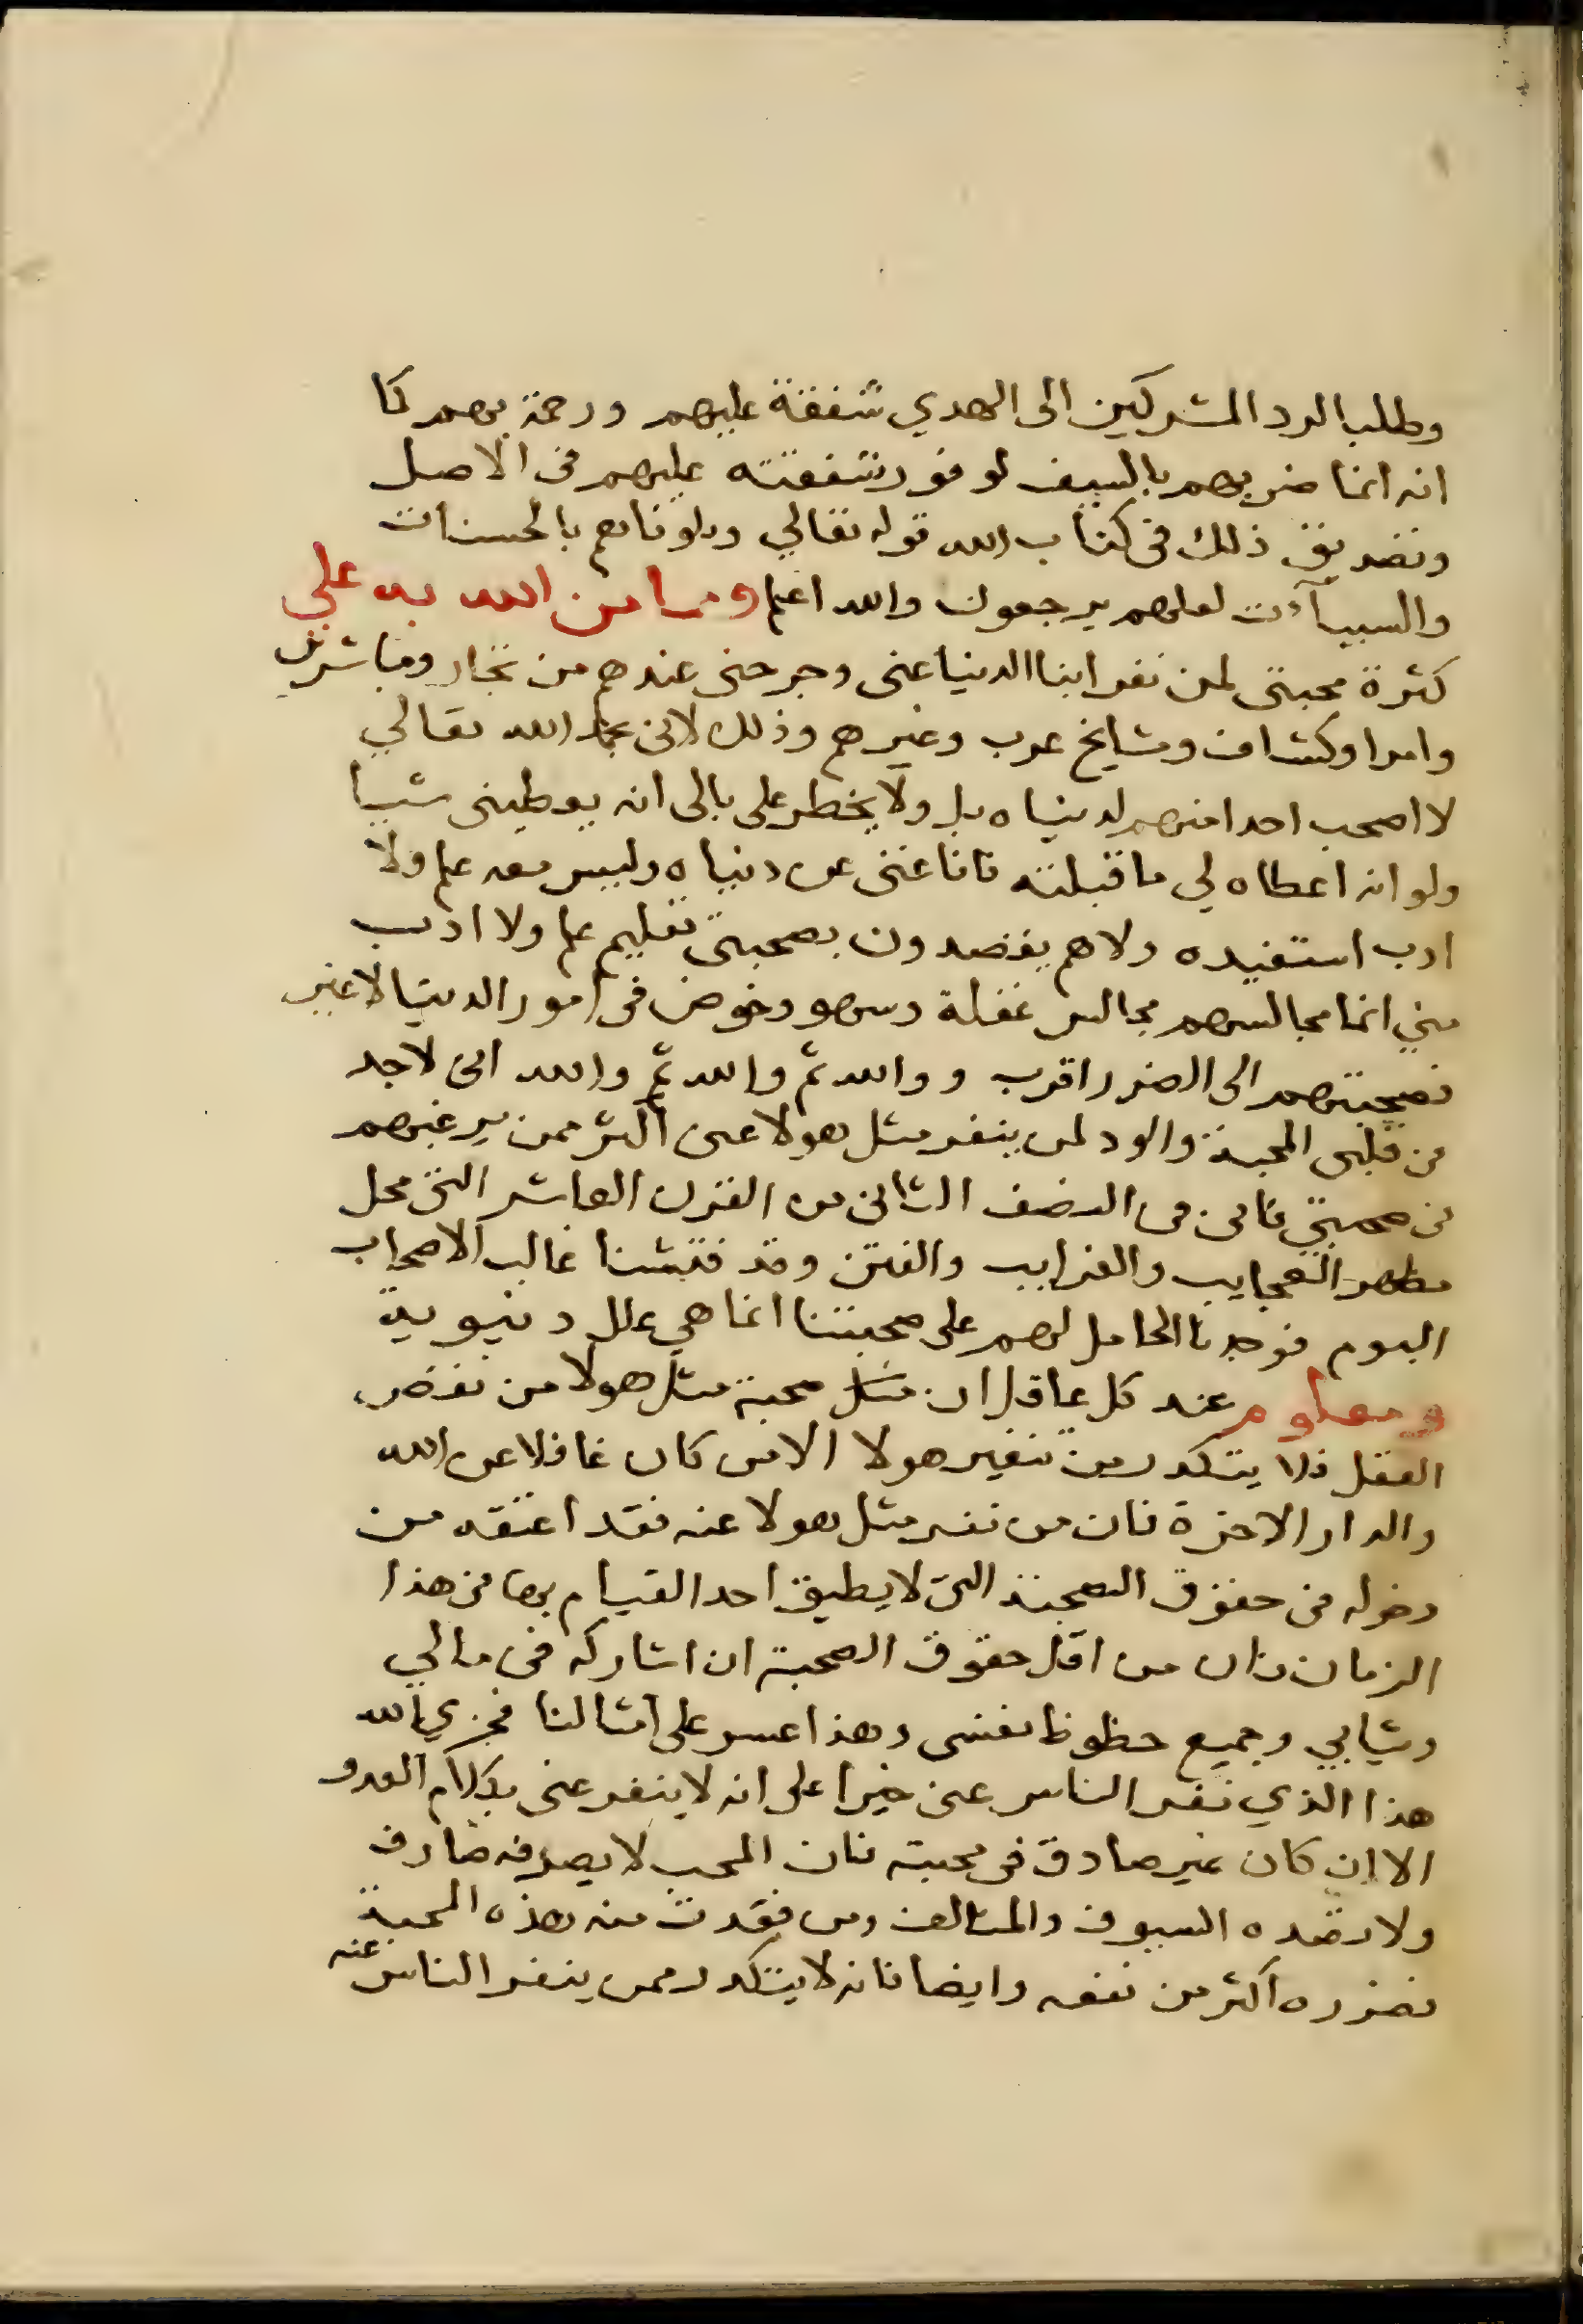 وطلبا لرد المشركين الى الهدي شفقة عليهم ورحمة بهم كما
انه انما ضربهم بالسيف لوفور شفقته عليهم في الاصل
وتصديق ذلك في كتاب الله قوله تعالي وبلوناهم بالحسنات
والسيآت لعلهم يرجعون والله اعلم ومما من الله به علي
كثرة محبتي لمن نفر ابنا الدنيا عني وجرحني عندهم من تجار ومباشرين
وامرا وكشاف ومشايخ عرب وغيرهم وذلك لاني بحمد الله تعالي
لا اصحب احدا منهم لدنياه بل ولا يخطر على بالى انه يعطيني شيا
ولو انه اعطاه لي ما قبلته فانا غني عن دنياه وليس معه علم ولا
ادب استفيده ولا هم يقصدون بصحبتي تعليم علم ولا ادب
مني انما مجالسهم مجالس غفلة وسهو وخوض في امور الدنيا لا غير
فصحبتهم الى الضرر اقرب ووالله ثم والله ثم والله اني لاجد
من قلبي المحبة والود لمن ينفر مثل هولا عني اكثر ممن يرغبهم
في صحبتي فاني في النصف الثاني من القرن العاشر التي محل
مظهر العجايب والغرايب والفتن وقد فتشنا غالب الاصحاب
اليوم فوجدنا الحامل لهم على صحبتنا انما هي علل دنيوية
ومعلوم عند كل عاقل ان مثل صحبة مثل هولا من نقص
العقل فلا يتكدر من تنفير هولا الا من كان غافلا عن الله
والدار الاخرة فان من نفر مثل هولا عنه فقد اعتقه من
دخوله في حقوق الصحبة التي لا يطيق احد القيام بها في هذا
الزمان فان من اقل حقوق الصحبة ان اشاركه في مالي
وثيابي وجميع حظوظ نفسي وهذا عسر على امثالنا فجزي الله
هذا الذي نفر الناس عني خيرا على انه لا ينفر عني بكلام العدو
الا ان كان غير صادق في محبته فان المحب لا يصرفه صارف
ولا ترده السيوف والمتالف ومن فقدت منه هذه المحبة
فضرره اكثر من نفعه وايضا فانه لا يتكدر ممن ينفر الناس عنه